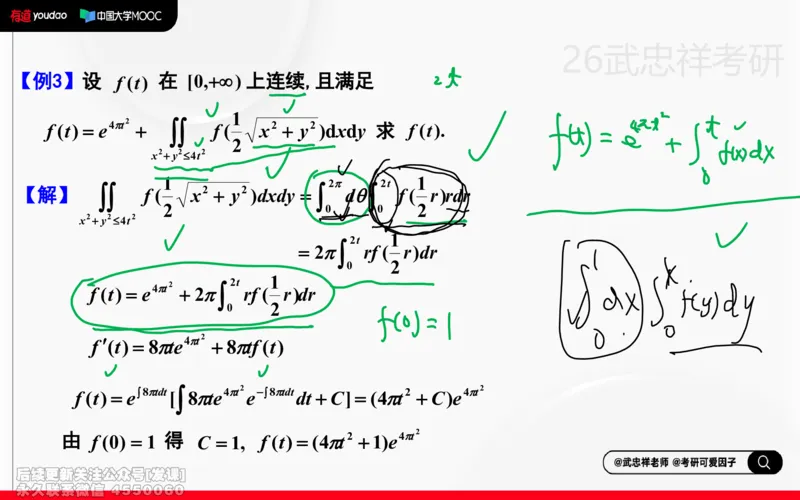 有道 youdao 中国大学MOOC
26武忠祥考研
【例3】设 f(t) 在 [0,+∞) 上连续,且满足
2t
f(t) = e^{4πt²} + ∬_{x²+y²≤4t²} f(1/2 √(x²+y²))dxdy 求 f(t).
f(t) = e^{4πt²} + ∫_0^t f(x)dx
【解】 ∬_{x²+y²≤4t²} f(1/2 √(x²+y²))dxdy = ∫_0^{2π} dθ ∫_0^{2t} f(1/2 r)rdr
= 2π∫_0^{2t} rf(1/2 r)dr
∫_0^1 dx ∫_0^x f(y)dy
f(t) = e^{4πt²} + 2π∫_0^{2t} rf(1/2 r)dr
f(0)=1
f′(t) = 8πte^{4πt²} + 8πtf(t)
f(t) = e^{∫8πtdt}[∫8πte^{4πt²}e^{-∫8πtdt}dt + C] = (4πt² + C)e^{4πt²}
由 f(0) = 1 得 C = 1, f(t) = (4πt² + 1)e^{4πt²}
@武忠祥老师 @考研可爱因子
后续更新关注公众号[发课]
永久联系微信 4550060